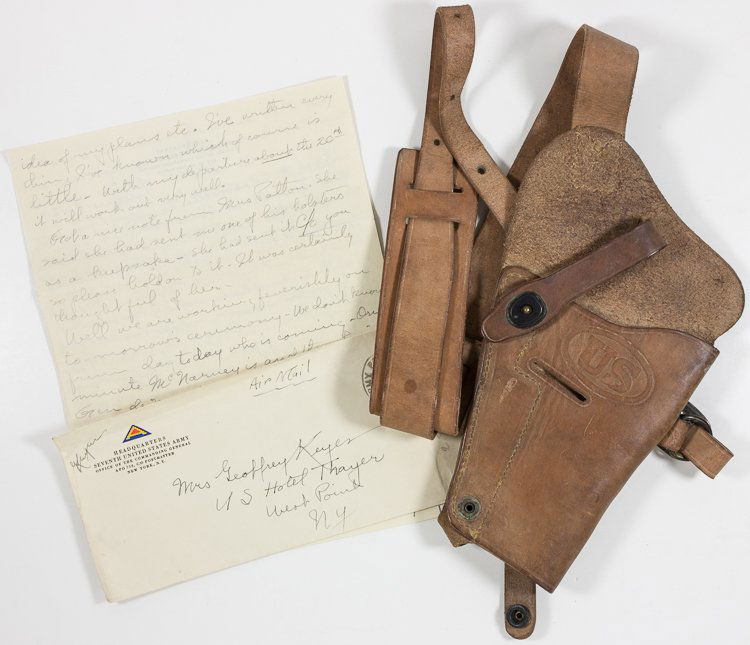 idea of my plans etc. I've written every
thing I've known which of course is
little - With my departure about the 20th
it will work out very well.
Got a nice note from Mrs Patton. She
said she had sent me one of his holsters
as a keepsake - she has sent it C/o you
so please hold on to it. It was certainly
thoughtful of her.
Well we are working feverishly on
tomorrows ceremony - We don't know
from day to day who is coming -
minute McNarney is and
Air Mail
HEADQUARTERS
SEVENTH UNITED STATES ARMY
OFFICE OF THE COMMANDING GENERAL
APO 758, CO POSTMASTER
NEW YORK, N.Y.
Mrs Geoffrey Keyes
U S Hotel Thayer
West Point
NY
US